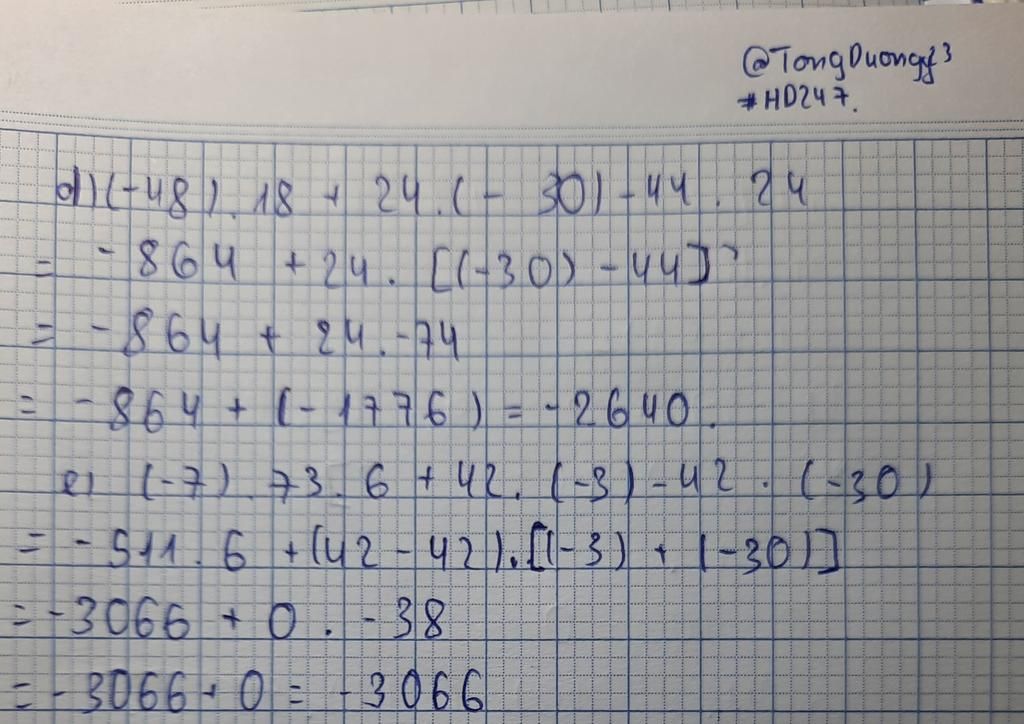 @TongDuongg23
#HD247.
d) (-48). 18 + 24.(- 30) - 44 . 24
= -864 + 24. [(-30) - 44]
= -864 + 24. -74
= -864 + (-1776) = -2640.
e) (-7). 73. 6 + 42. (-3) - 42 . (-30)
= -511. 6 + (42 - 42).[(-3) + (-30)]
= -3066 + 0 . -38
= -3066 + 0 = -3066